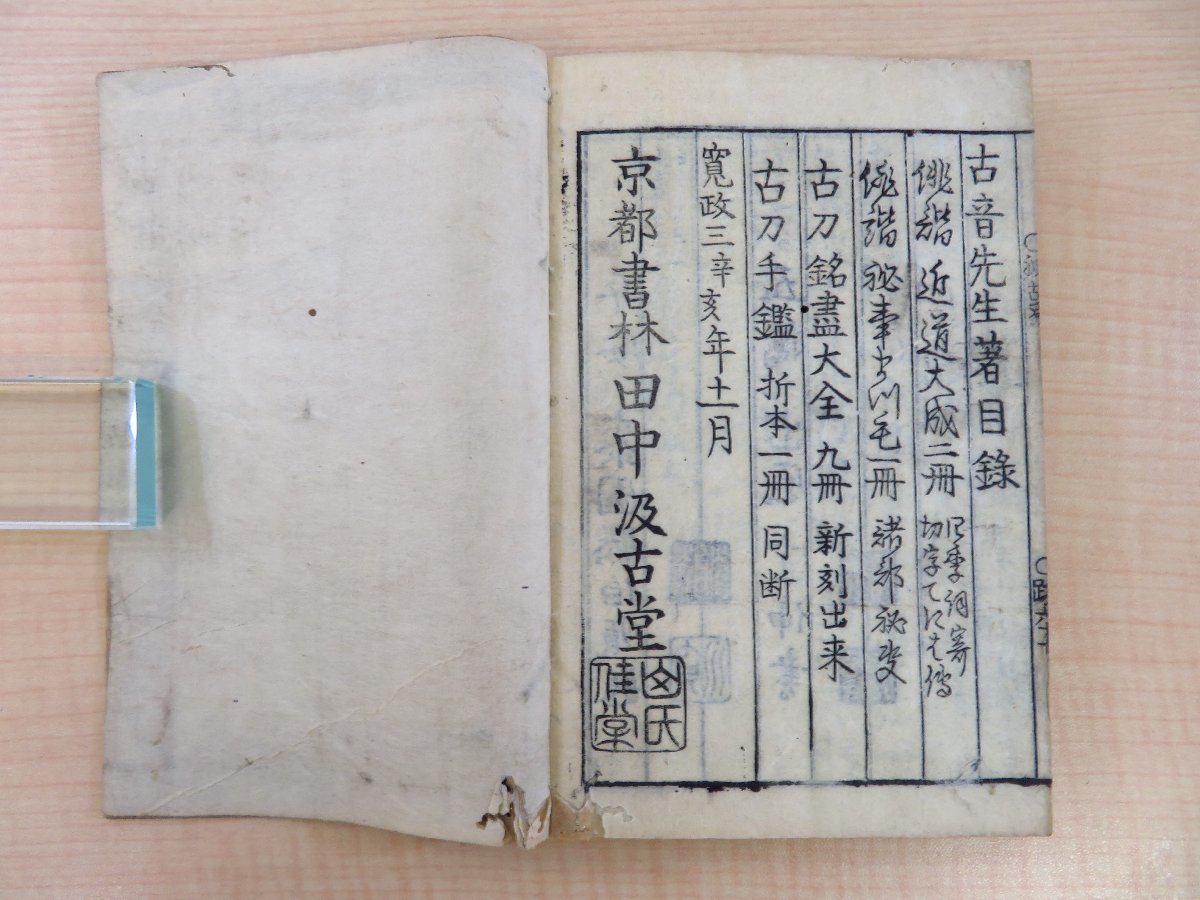 古音先生著目錄
俳諧 近道大成二冊 四季詞寄
切字てにをは傳
俳諧 祕事 一冊 諸部祕
古刀銘盡大全 九冊 新刻出来
古刀手鑑 折本一冊 同断
寛政三辛亥年十一月
京都書林 田中汲古堂